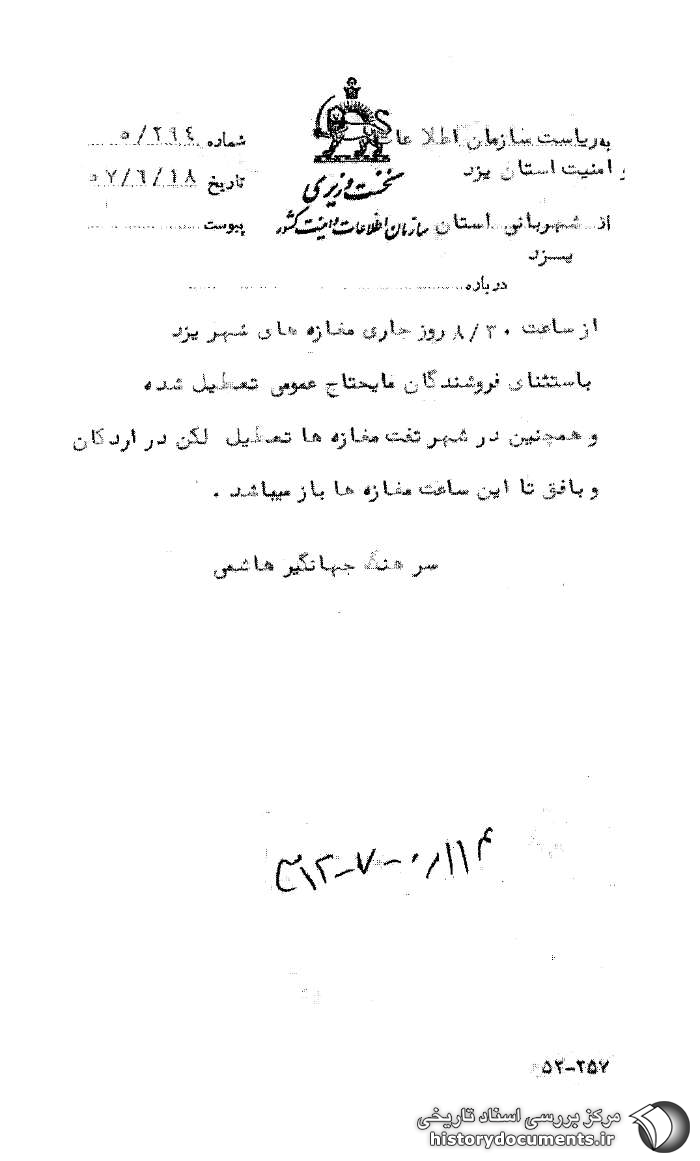 به ریاست سازمان اطلاعات
و امنیت استان یزد
نخست وزیری
سازمان اطلاعات و امنیت کشور
شماره ۵/۲۹۴
تاریخ ۵۷/۶/۱۸
پیوست
از شهربانی استان
یزد
درباره
از ساعت ۸/۳۰ روز جاری مغازه های شهر یزد
باستثنای فروشندگان مایحتاج عمومی تعطیل شده
و همچنین در شهر تفت مغازه ها تعطیل لکن در اردکان
و بافق تا این ساعت مغازه ها باز میباشد .
سرهنگ جهانگیر هاشمی
۵۲-۲۵۷
مرکز بررسی اسناد تاریخی
historydocuments.ir